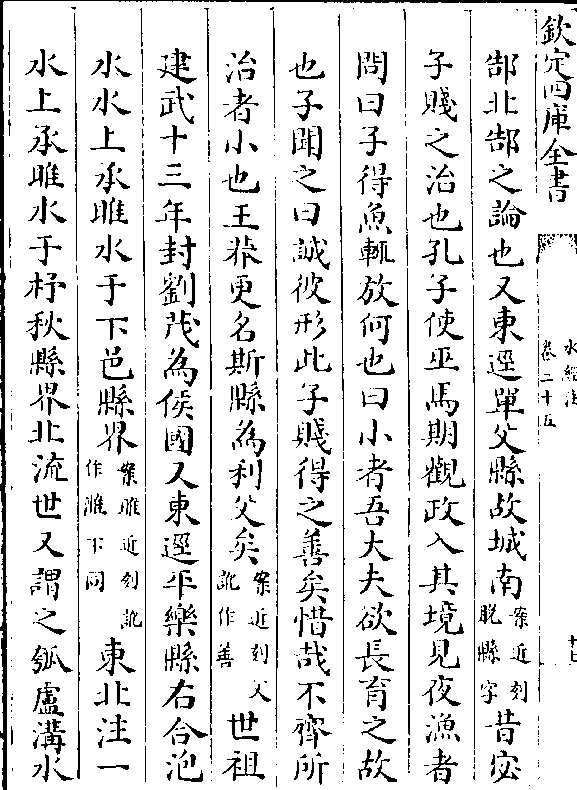 欽定四庫全書
水經注
卷二十五
郜北郜之論也又東逕單父縣故城南案近刻脫縣字昔宓
子賤之治也孔子使巫馬期觀政入其境見夜漁者
問曰子得魚輒放何也曰小者吾大夫欲長育之故
也子聞之曰誠彼形此子賤得之善矣惜哉不齊所
治者小也王莽更名斯縣為利父矣案近刻父訛作善世祖
建武十三年封劉茂為侯國又東逕平樂縣右合泡
水水上承睢水于下邑縣界案睢近刻訛作濉下同東北注一
水上承睢水于杼秋縣界北流世又謂之瓠盧溝水